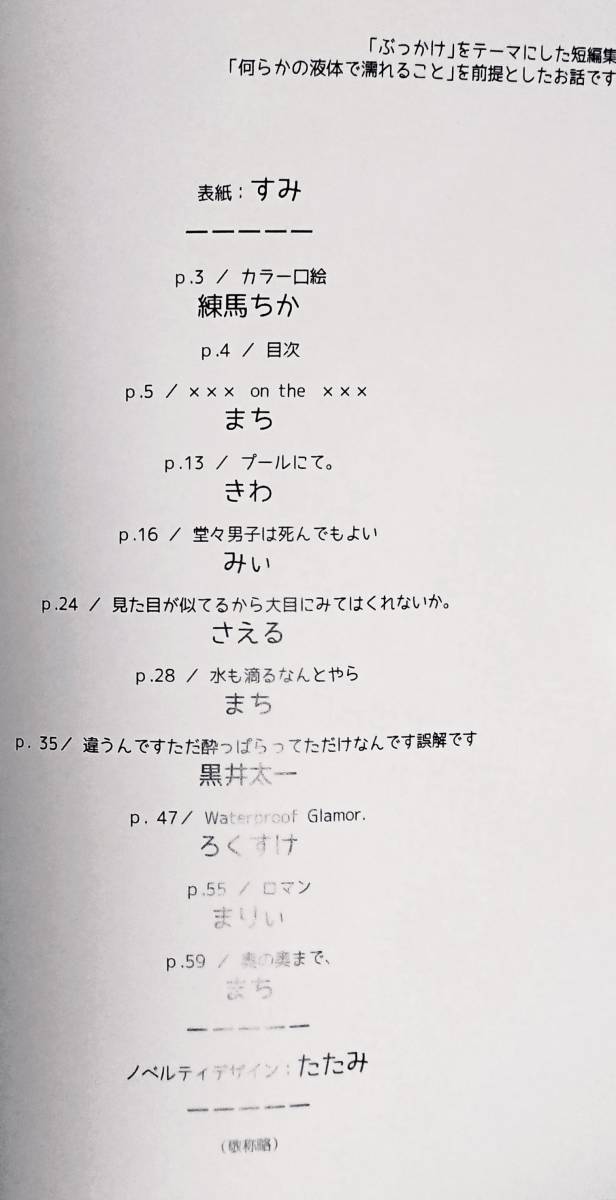 「ぶっかけ」をテーマにした短編集
「何らかの液体で濡れること」を前提としたお話です
表紙：すみ
ーーーーー
p.3 / カラー口絵
練馬ちか
p.4 / 目次
p.5 / ××× on the ×××
まち
p.13 / プールにて。
きわ
p.16 / 堂々男子は死んでもよい
みぃ
p.24 / 見た目が似てるから大目にみてはくれないか。
さえる
p.28 / 水も滴るなんとやら
まち
p. 35/ 違うんですただ酔っぱらってただけなんです誤解です
黒井太一
p. 47/ Waterproof Glamor.
ろくすけ
p.55 / ロマン
まりぃ
p.59 / 奥の奥まで、
まち
ーーーーー
ノベルティデザイン：たたみ
ーーーーー
（敬称略）